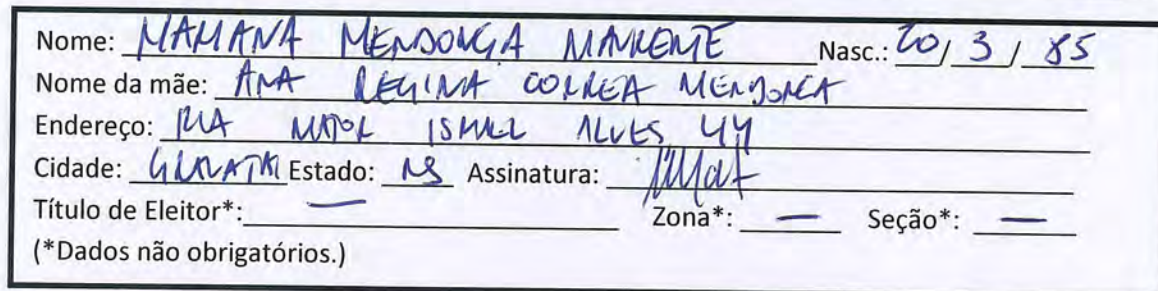 Nome: MENDONÇA Nasc.: 20/ 3 / 85
Nome da mãe: ANA REGINA CORREA MENDONCA
Endereço: RUA MAJOR ISMAEL ALVES 44
Cidade: GRAVATAI Estado: RS Assinatura:
Título de Eleitor*: — Zona*: — Seção*: —
(*Dados não obrigatórios.)